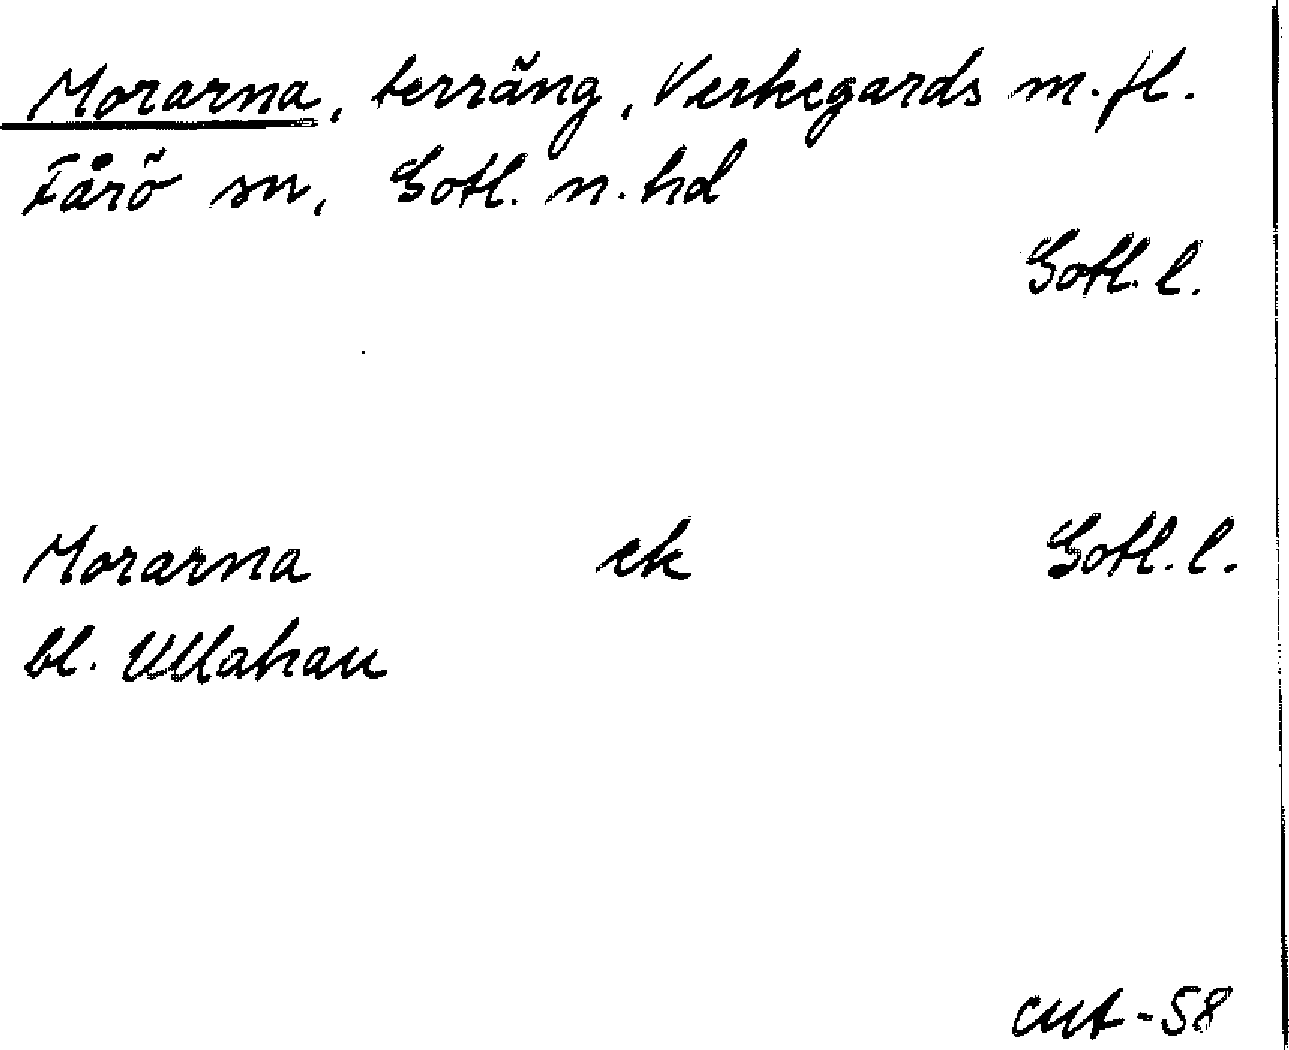 Morarna, terräng, Verkegards m.fl.
Fårö sn, Gotl. n. hd
Gotl. l.
Morarna ek Gotl. l.
bl. Ullahau
-58